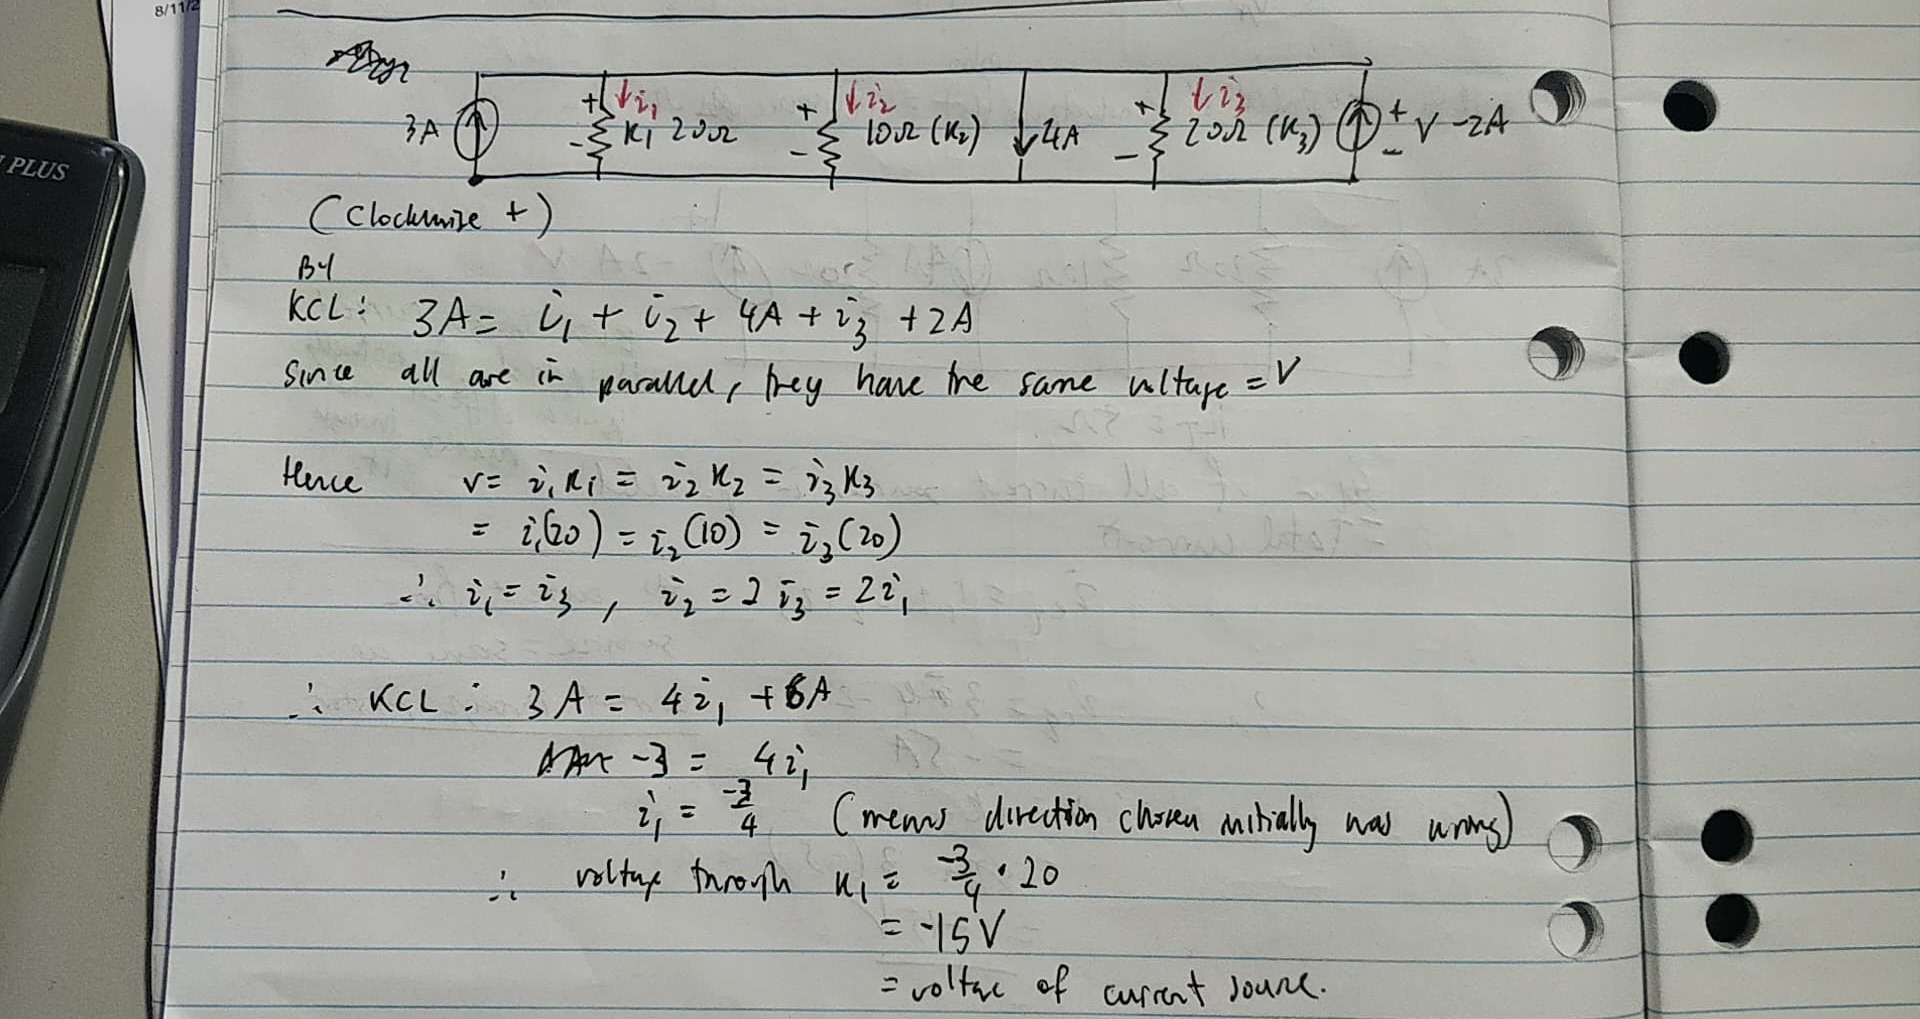 8/11/2
PLUS
3A i₁ R₁ 20Ω i₂ 10Ω (R₂) 4A i₃ 20Ω (R₃) + V - -2A
(Clockwise +)
By
KCL: 3A = i₁ + i₂ + 4A + i₃ + 2A
Since all are in parallel, they have the same voltage = V
Hence V = i₁R₁ = i₂R₂ = i₃R₃
= i₁(20) = i₂(10) = i₃(20)
∴ i₁ = i₃, i₂ = 2i₃ = 2i₁
∴ KCL: 3A = 4i₁ + 6A
-3 = 4i₁
i₁ = -3/4 (means direction chosen initially was wrong)
∴ voltage through R₁ = -3/4 · 20
= -15V
= voltage of current source.